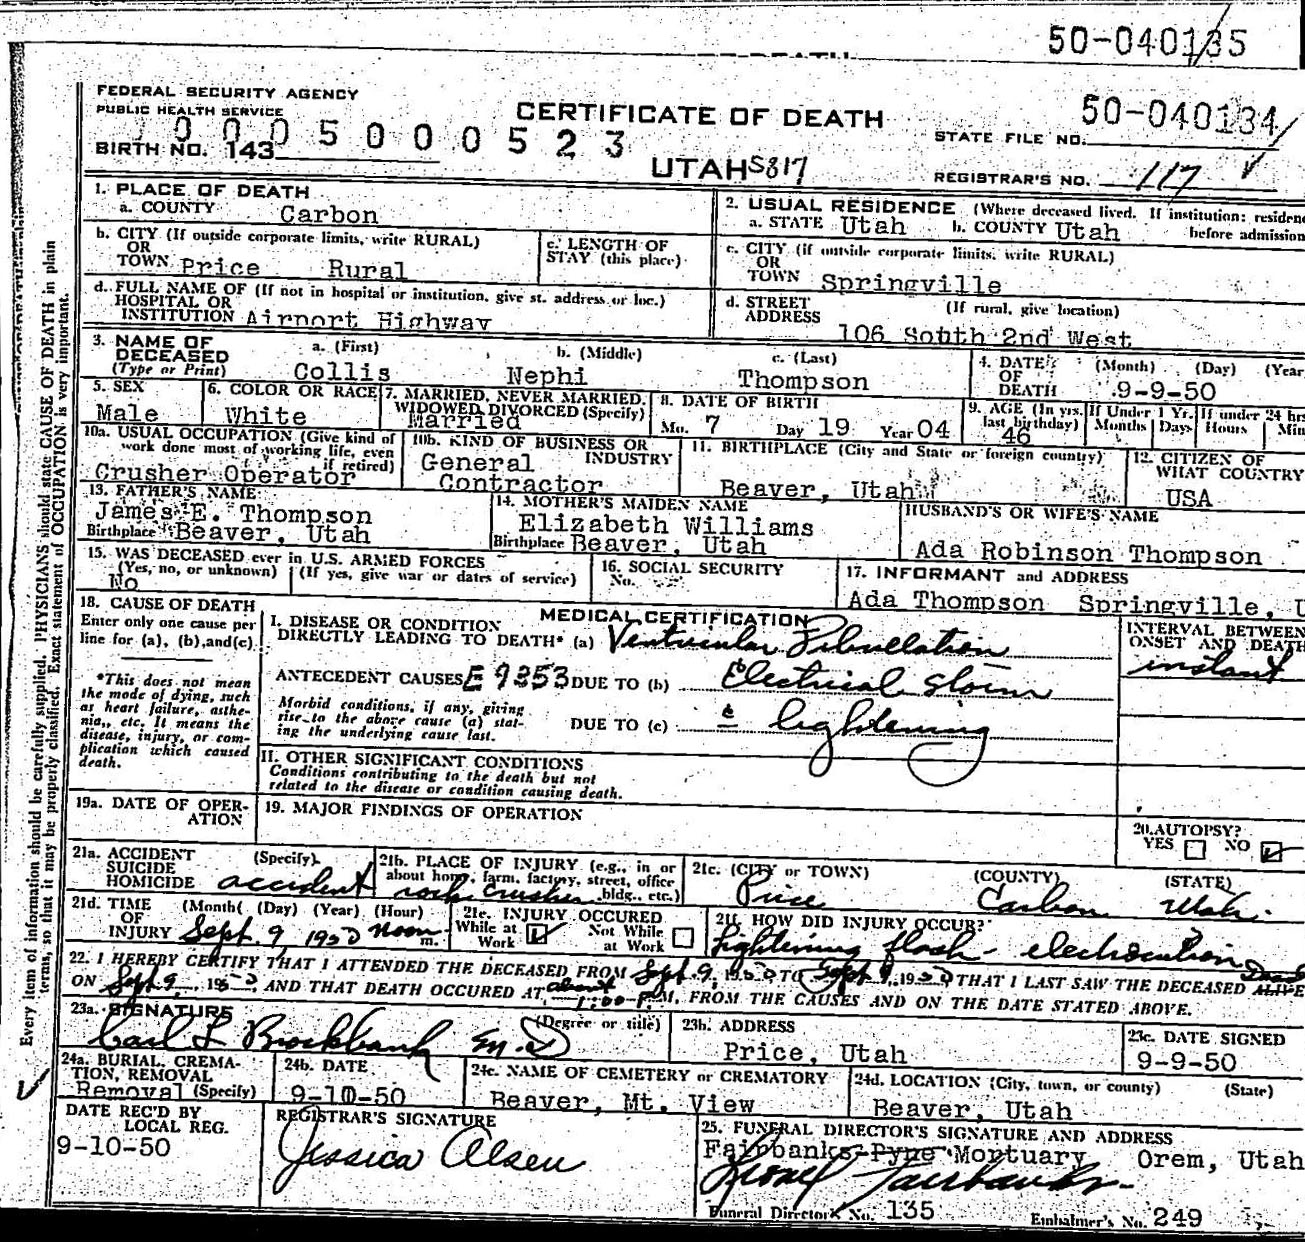 50-040135
FEDERAL SECURITY AGENCY
PUBLIC HEALTH SERVICE
CERTIFICATE OF DEATH
50-040134
STATE FILE NO.
0005000523
BIRTH NO. 143
UTAH S817
REGISTRAR'S NO. 117
1. PLACE OF DEATH
a. COUNTY Carbon
2. USUAL RESIDENCE (Where deceased lived. If institution: residence before admission
a. STATE Utah b. COUNTY Utah
b. CITY (If outside corporate limits, write RURAL)
OR
TOWN Price Rural
c. LENGTH OF
STAY (this place)
c. CITY (if outside corporate limits, write RURAL)
OR
TOWN Springville
d. FULL NAME OF (If not in hospital or institution, give st. address or loc.)
HOSPITAL OR
INSTITUTION Airport Highway
d. STREET (If rural, give location)
ADDRESS
106 South 2nd West
3. NAME OF
DECEASED
(Type or Print)
a. (First) b. (Middle) c. (Last)
Collis Nephi Thompson
4. DATE (Month) (Day) (Year
OF
DEATH 9-9-50
5. SEX
Male
6. COLOR OR RACE
White
7. MARRIED, NEVER MARRIED,
WIDOWED DIVORCED (Specify)
Married
8. DATE OF BIRTH
Mo. 7 Day 19 Year 04
9. AGE (In yrs. last birthday)
46
If Under 1 Yr. Months Days
If under 24 hrs Hours Min
10a. USUAL OCCUPATION (Give kind of
work done most of working life, even
if retired)
Crusher Operator
10b. KIND OF BUSINESS OR
INDUSTRY
General
Contractor
11. BIRTHPLACE (City and State or foreign country)
Beaver, Utah
12. CITIZEN OF
WHAT COUNTRY
USA
13. FATHER'S NAME
James E. Thompson
Birthplace Beaver, Utah
14. MOTHER'S MAIDEN NAME
Elizabeth Williams
Birthplace Beaver, Utah
HUSBAND'S OR WIFE'S NAME
Ada Robinson Thompson
15. WAS DECEASED ever in U.S. ARMED FORCES
(Yes, no, or unknown) (If yes, give war or dates of service)
No
16. SOCIAL SECURITY
No.
17. INFORMANT and ADDRESS
Ada Thompson Springville, U
18. CAUSE OF DEATH
Enter only one cause per
line for (a), (b), and (c).
*This does not mean
the mode of dying, such
as heart failure, asthe-
nia, etc. It means the
disease, injury, or com-
plication which caused
death.
MEDICAL CERTIFICATION
I. DISEASE OR CONDITION
DIRECTLY LEADING TO DEATH* (a) Ventricular Fibrillation
ANTECEDENT CAUSES E 9353 DUE TO (b) Electrical storm
Morbid conditions, if any, giving
rise to the above cause (a) stat-
ing the underlying cause last.
DUE TO (c) lightening
INTERVAL BETWEEN
ONSET AND DEATH
instant
II. OTHER SIGNIFICANT CONDITIONS
Conditions contributing to the death but not
related to the disease or condition causing death.
19a. DATE OF OPER-
ATION
19. MAJOR FINDINGS OF OPERATION
20. AUTOPSY?
YES NO
21a. ACCIDENT (Specify)
SUICIDE
HOMICIDE accident
21b. PLACE OF INJURY (e.g., in or
about home, farm, factory, street, office
bldg., etc.)
rock crusher
21c. (CITY or TOWN) (COUNTY) (STATE)
Price Carbon Utah
21d. TIME (Month) (Day) (Year) (Hour)
OF
INJURY Sept. 9, 1950 Noon m.
21e. INJURY OCCURED
While at Work
Not While at Work
21f. HOW DID INJURY OCCUR?
Lightening flash - electrocution
22. I HEREBY CERTIFY THAT I ATTENDED THE DECEASED FROM Sept. 9, 1950 TO Sept 9, 1950 THAT I LAST SAW THE DECEASED ALIVE Dead
ON Sept 9, 1950, AND THAT DEATH OCCURED AT about 1:00 P.M, FROM THE CAUSES AND ON THE DATE STATED ABOVE.
23a. SIGNATURE (Degree or title)
Carl L Brockbank M.D
23b. ADDRESS
Price, Utah
23c. DATE SIGNED
9-9-50
24a. BURIAL, CREMA-
TION, REMOVAL
Removal (Specify)
24b. DATE
9-10-50
24c. NAME OF CEMETERY or CREMATORY
Beaver, Mt. View
24d. LOCATION (City, town, or county) (State)
Beaver, Utah
DATE REC'D BY
LOCAL REG.
9-10-50
REGISTRAR'S SIGNATURE
Jessica Olsen
25. FUNERAL DIRECTOR'S SIGNATURE AND ADDRESS
Fairbanks-Pyne Mortuary Orem, Utah
Lionel Fairbanks
Funeral Director's No. 135 Embalmer's No. 249
Every item of information should be carefully supplied. PHYSICIANS should state CAUSE OF DEATH in plain
terms, so that it may be properly classified. Exact statement of OCCUPATION is very important.